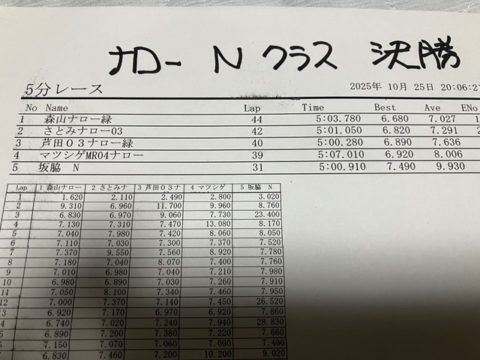 ナロー N クラス 決勝
5分レース
2025年 10月 25日 20:06:2
No Name Lap Time Best Ave
1 森山ナロー緑 44 5:03.780 6.680 7.027
2 さとみナロー03 42 5:01.050 6.820 7.291
3 芦田03ナロー緑 40 5:00.280 6.890 7.636
4 マツシゲMR04ナロー 39 5:07.010 6.920 8.006
5 坂脇 N 31 5:00.910 7.490 9.930
Lap 1 森山ナロー 2 さとみナ 3 芦田03ナ 4 マツシゲ 5 坂脇 N
1 1.620 2.110 2.490 2.800 3.020
2 9.310 6.960 11.700 9.960 8.760
3 6.830 6.970 9.060 7.730 23.400
4 7.130 7.310 7.470 13.080 8.170
5 7.040 7.980 7.420 8.060 8.050
6 7.110 7.030 7.300 7.370 7.520
7 7.370 9.550 7.560 8.920 7.780
8 7.180 7.040 8.070 7.400 7.760
9 7.010 6.980 7.040 7.210 7.980
10 6.980 6.890 7.030 7.260 7.910
11 7.050 8.100 7.340 7.460 7.950
12 7.000 7.370 7.140 7.450 26.520
13 6.920 7.170 6.970 6.920 7.860
4 6.740 7.020 7.240 7.940 28.830
5 6.890 7.200 7.380 7.220 7.660
7.150 7.070 7.060 7.290
6.830 7.460 7.200 10.200 9.020